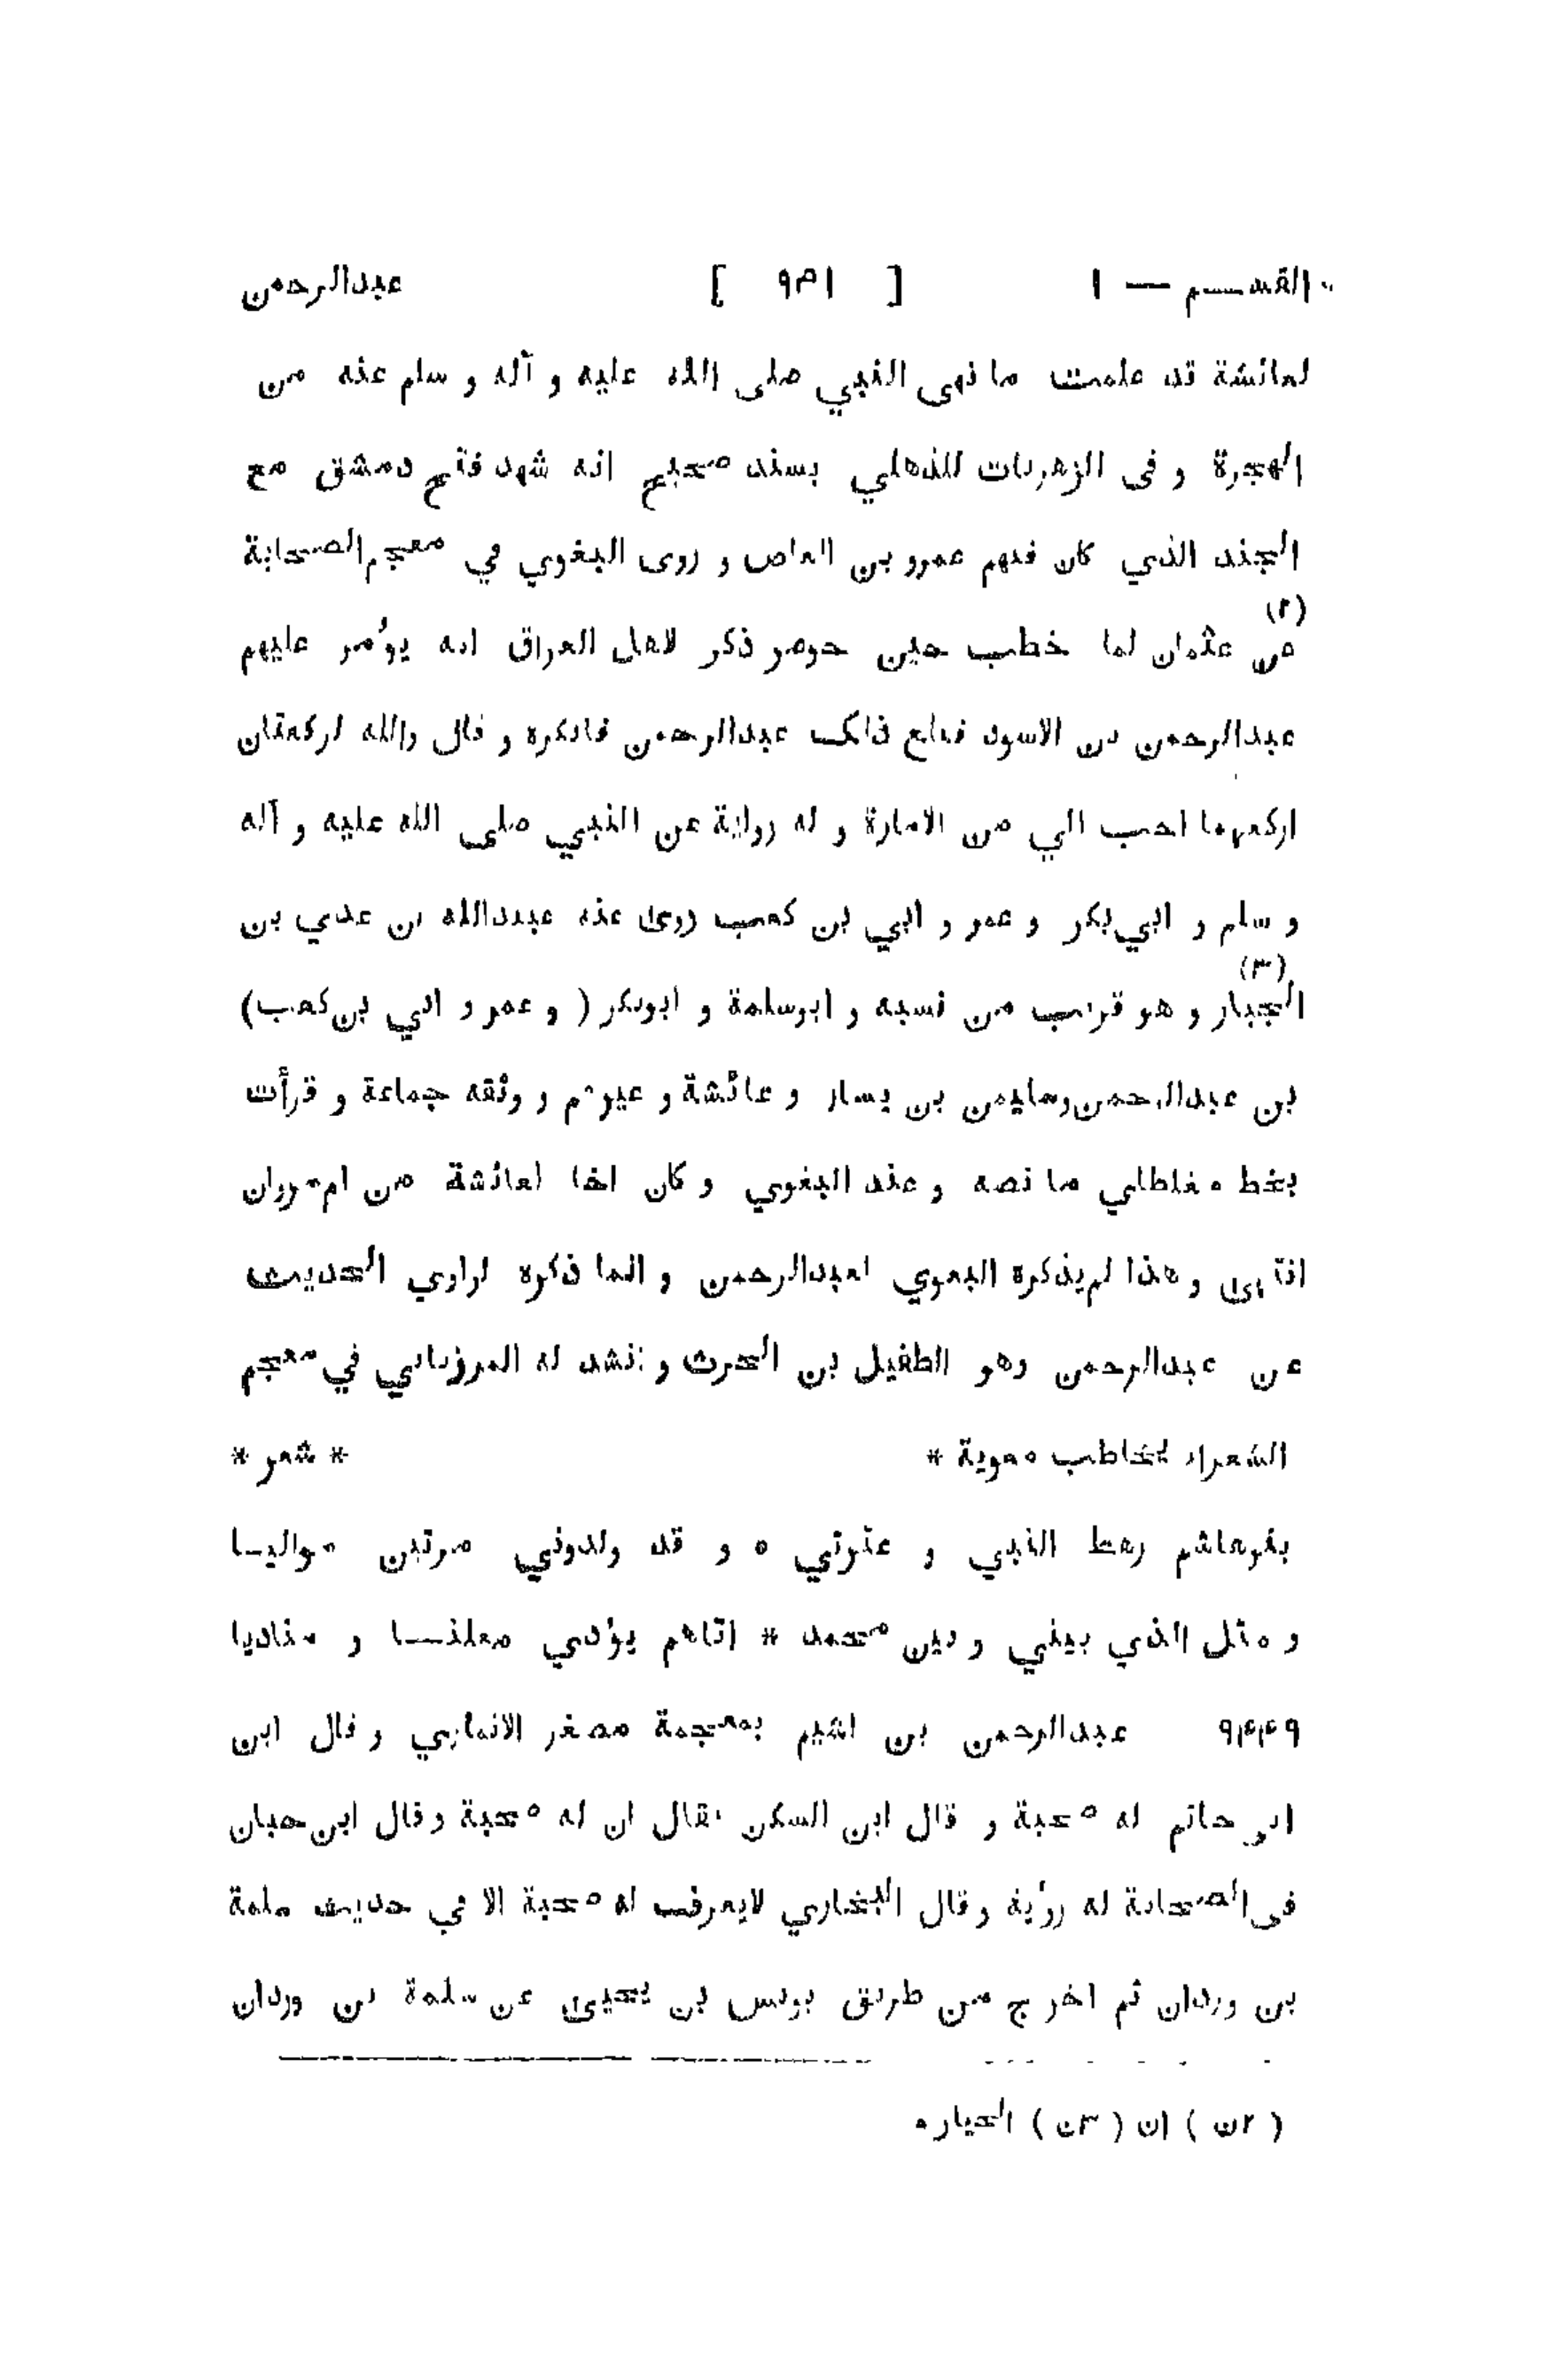 القســـم — ١ [ ٩٣١ ] عبدالرحمن
لعائشة قد علمت ما نهى النبي صلى الله عليه و آله و سلم عنه من
الهجرة و فى الزهريات للذهلي بسند صحيح انه شهد فتح دمشق مع
الجند الذي كان فيهم عمرو بن العاص و روى البغوي في معجم الصحابة
(٢)
من عثمان لما خطب حين حوصر ذكر لاهل العراق انه يؤمر عليهم
عبدالرحمن بن الاسود فبلغ ذالك عبدالرحمن فانكره و قال والله لركعتان
اركعهما احب الي من الامارة و له رواية عن النبي صلى الله عليه و آله
و سلم و ابي بكر و عمر و ابي بن كعب روى عنه عبيدالله بن عدي بن
(٣)
الجبار و هو قريب من نسبه و ابوسلمة و ابوبكر ( و عمر و ابي بن كعب)
بن عبدالرحمن وسليمن بن يسار و عائشة و غيرهم و وثقه جماعة و قرأت
بخط مغلطاي ما نصه و عند البغوي و كان اخا لعائشة من ام مروان
انتهى و هذا لم يذكره البغوي لعبدالرحمن و انما ذكره لراوي الحديث
عن عبدالرحمن وهو الطفيل بن الحرث و انشد له المرزباني في معجم
الشعراء يخاطب معوية * * شعر *
بنوهاشم رهط النبي و عترتي ه و قد ولدوني مرتين مواليـــا
و مثل الذي بيني و بين محمد * اتاهم يؤدي معلنـــا و مناديا
٩٤٤٩ عبدالرحمن بن اشيم بمعجمة مصغر الانماري و قال ابن
ابي حاتم له صحبة و قال ابن السكن يقال ان له صحبة و قال ابن حبان
فى الصحابة له رؤية و قال البخاري لايعرف له صحبة الا في حديث سلمة
بن وردان ثم اخرج من طريق يونس بن يحيى عن سلمة بن وردان
( ٢ن ) ان ( ٣ن ) الحيار ه